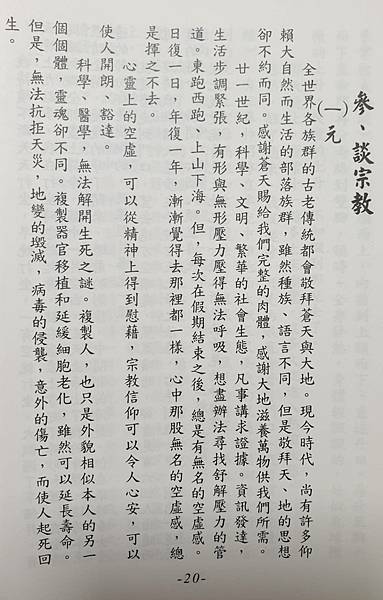 參、談宗教
(一)元
全世界各族群的古老傳統都會敬拜蒼天與大地。現今時代，尚有許多仰
賴大自然而生活的部落族群，雖然種族、語言不同，但是敬拜天、地的思想
卻不約而同。感謝蒼天賜給我們完整的肉體，感謝大地滋養萬物供我們所需。
廿一世紀，科學、文明、繁華的社會生態，凡事講求證據。資訊發達，
生活步調緊張，有形與無形壓力壓得無法呼吸，想盡辦法尋找舒解壓力的管
道。東跑西跑、上山下海。但，每次在假期結束之後，總是有無名的空虛感。
日復一日，年復一年，漸漸覺得去那裡都一樣，心中那股無名的空虛感，總
是揮之不去。
心靈上的空虛，可以從精神上得到慰藉，宗教信仰可以令人心安，可以
使人開朗、豁達。
科學、醫學，無法解開生死之謎。複製人，也只是外貌相似本人的另一
個個體，靈魂卻不同。複製器官移植和延緩細胞老化，雖然可以延長壽命。
但是，無法抗拒天災，地變的毀滅，病毒的侵襲，意外的傷亡，而使人起死回
生。
-20-